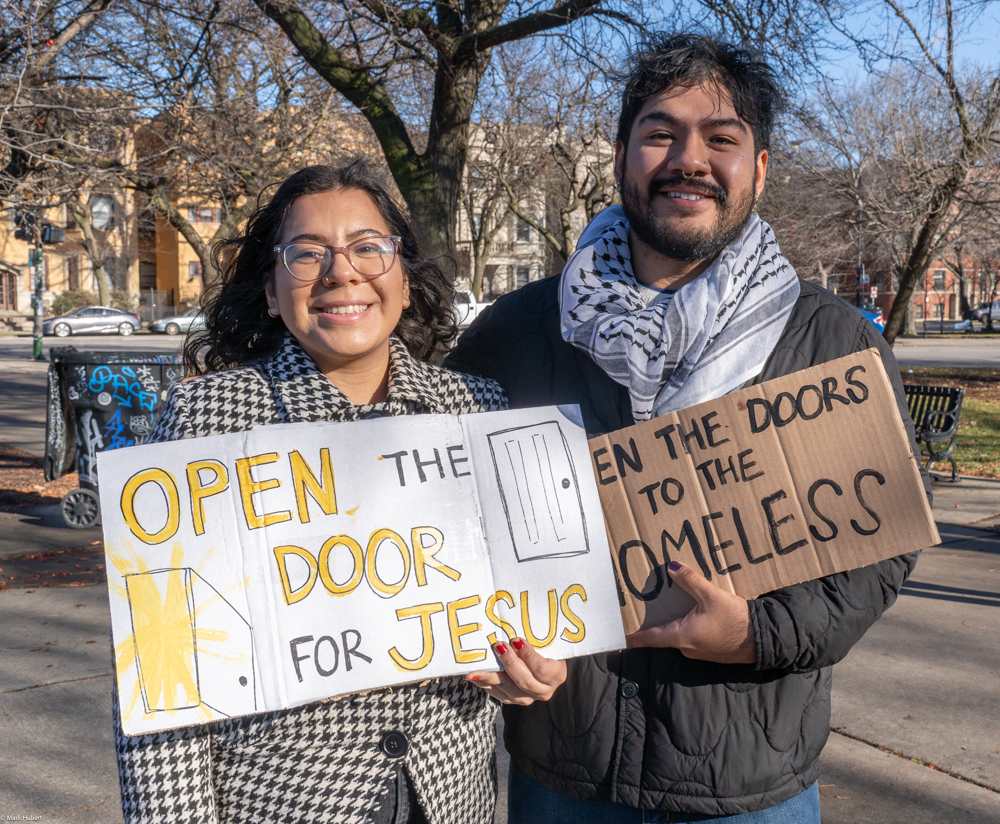 OPEN THE
DOOR
FOR JESUS
EN THE DOORS
TO THE
OMELESS
© Mark Hubert